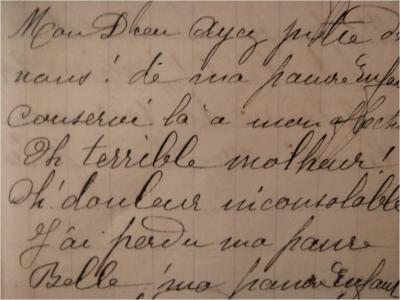 Mon Dieu Ayez pitié de
nous! de ma pauvre Enfan
Conservé la a mon
Oh terrible malheur!
Oh! douleur inconsolable
J'ai perdu ma pauvre
Belle ma pauvre Enfant